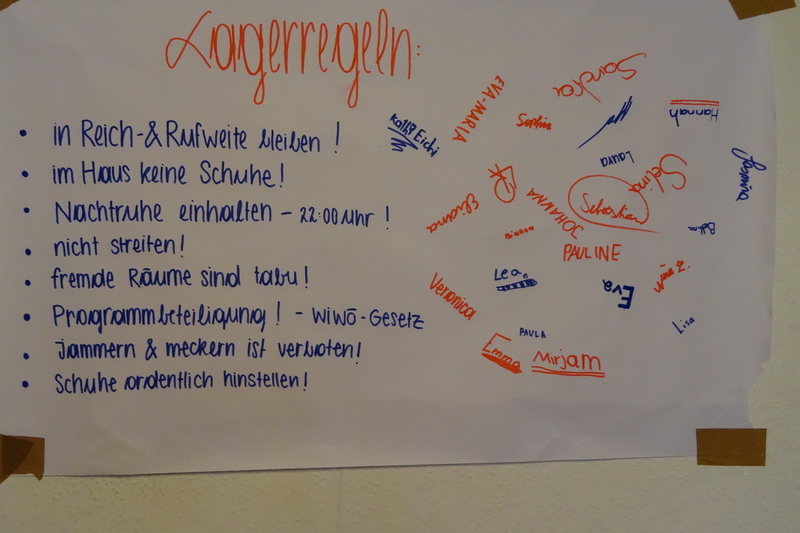 Lagerregeln:
• in Reich-&Rufweite bleiben !
• im Haus keine Schuhe!
• Nachtruhe einhalten - 22:00 Uhr !
• nicht streiten!
• fremde Räume sind tabu!
• Programmbteiligung! - WIWÖ-GESETZ
• Jammern & meckern ist verboten!
• Schuhe ordentlich hinstellen!
EVA-MARIA
Sophia
Sandra
Hannah
Laura
Jasmina
Selina
Sebastian
Eliana
JOHANNA
Bianca
PAULINE
Lea
Eva
Veronica
Lisa
PAULA
Emma
Mirjam